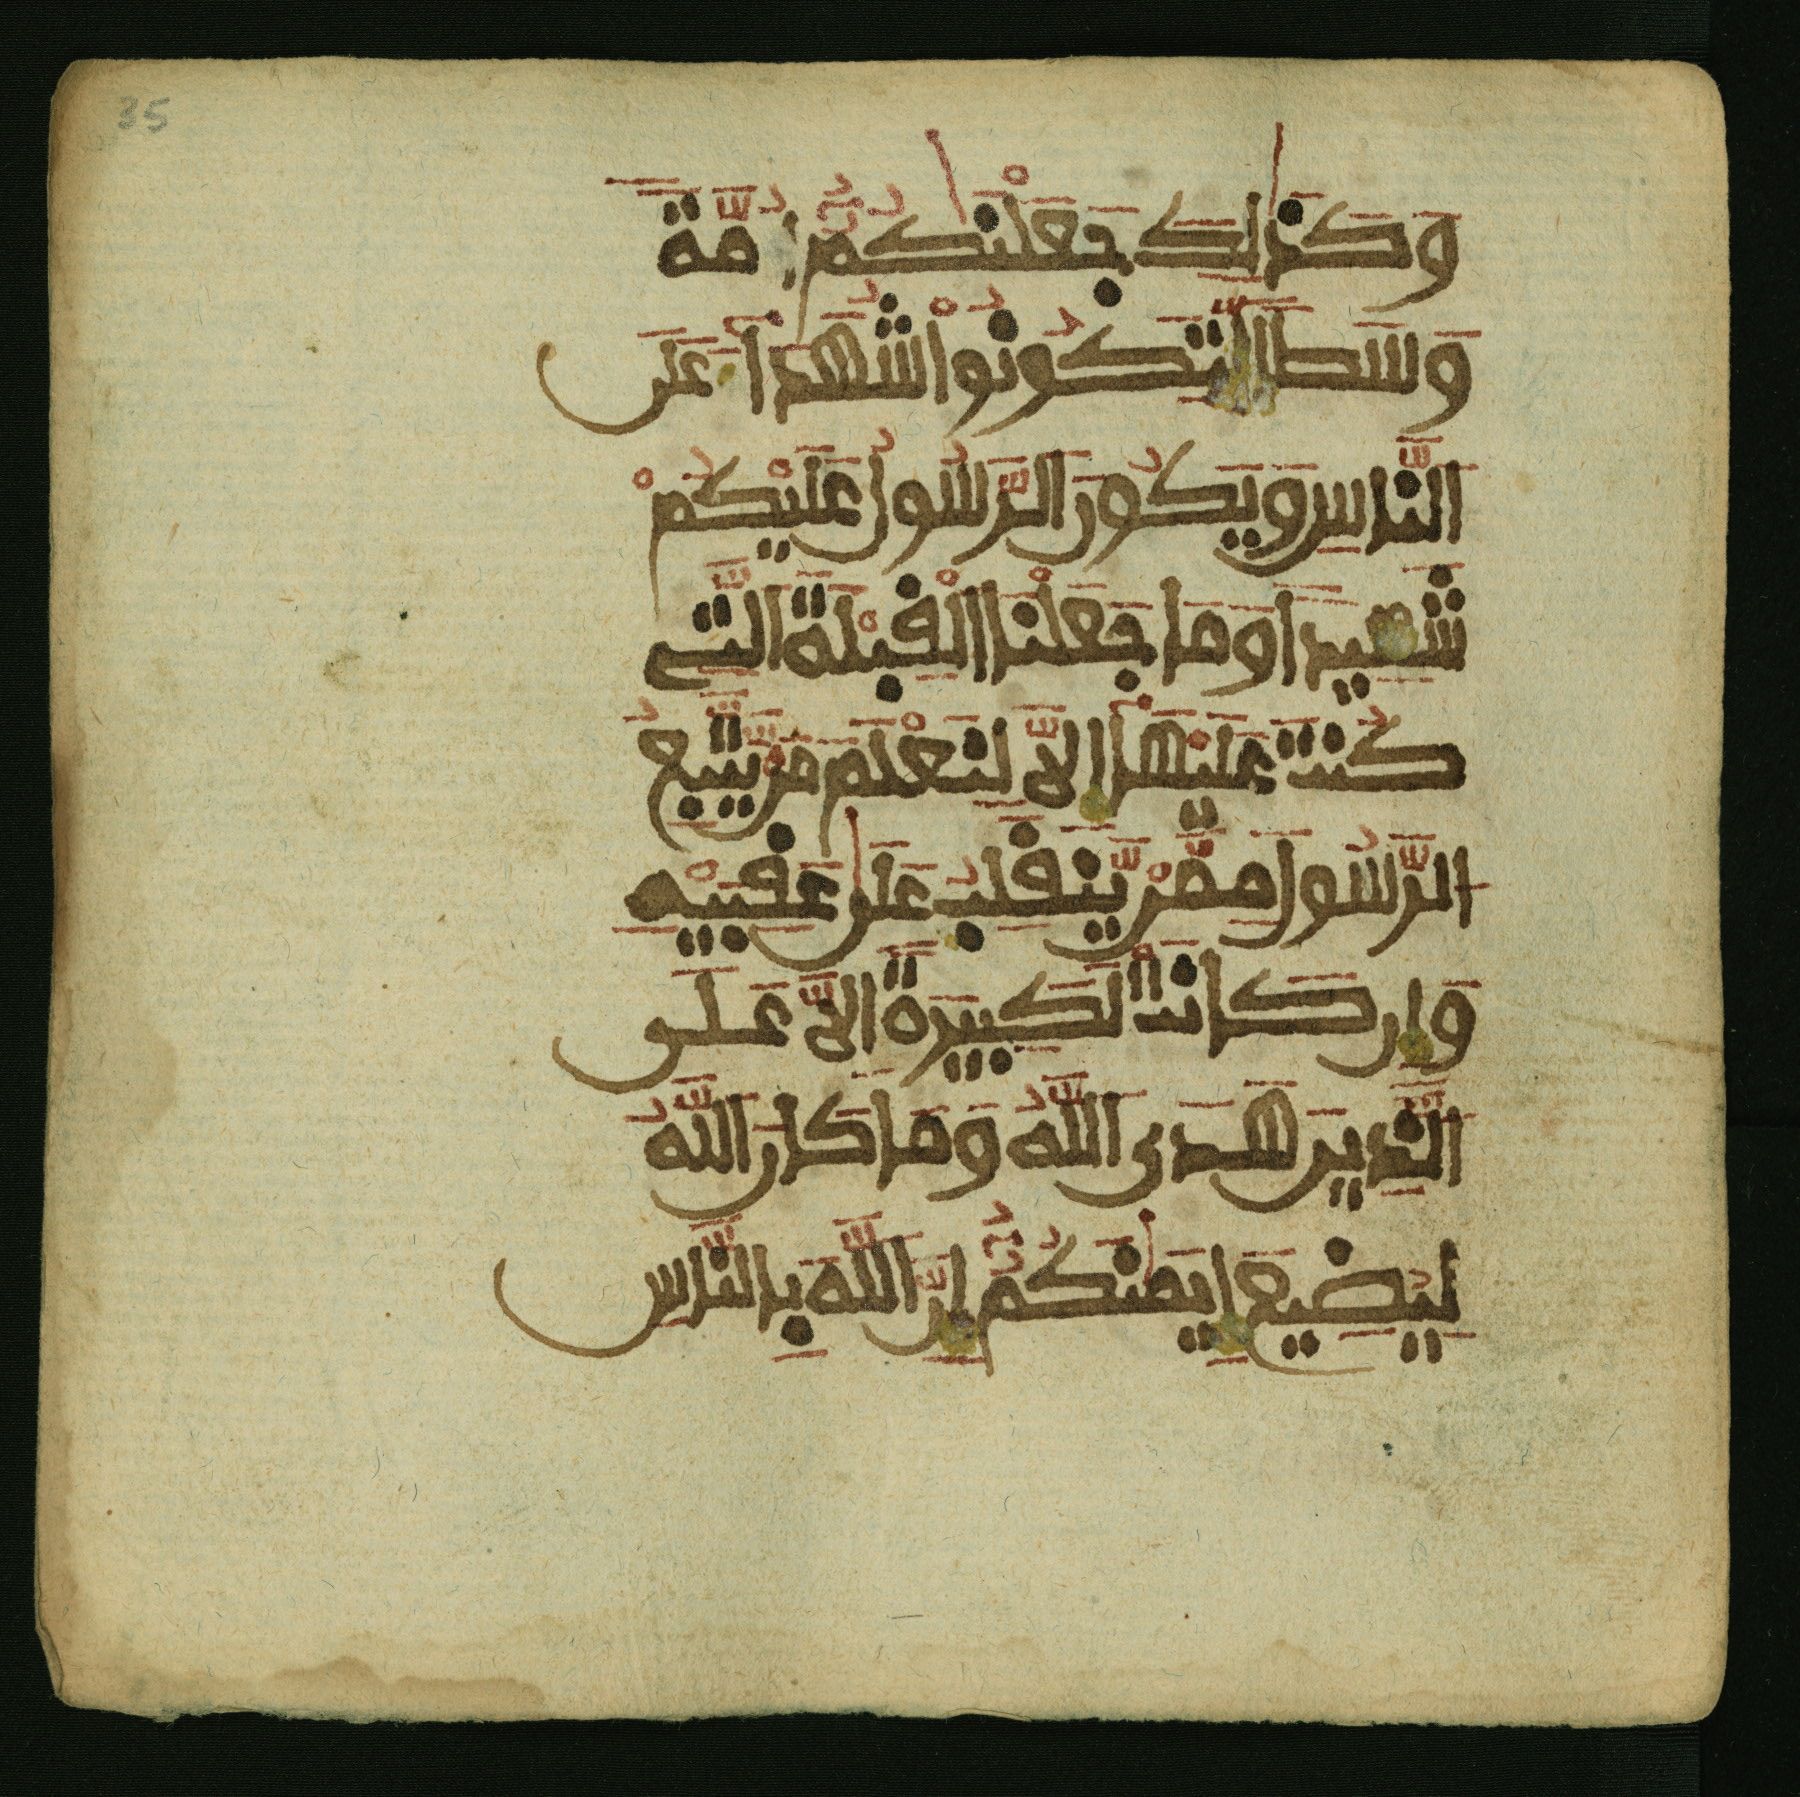 35
وَكَذَٰلِكَ جَعَلْنَٰكُمُۥٓ أُمَّةً
وَسَطًا لِّتَكُونُواْ شُهَدَآءَ عَلَى
النَّاسِ وَيَكُونَ الرَّسُولُ عَلَيْكُمْ
شَهِيدًا وَمَا جَعَلْنَا الْقِبْلَةَ الَّتِے
كُنتَ عَلَيْهَآ إِلَّا لِنَعْلَمَ مَنْ يَّتَّبِعُ
الرَّسُولَ مِمَّنْ يَّنقَلِبُ عَلَىٰ عَقِبَيْهِ
وَإِن كَانَتْ لَكَبِيرَةً إِلَّا عَلَى
الَّذِينَ هَدَى اللَّهُ وَمَا كَانَ اللَّهُ
لِيُضِيعَ إِيمَٰنَكُمُۥٓ إِنَّ اللَّهَ بِالنَّاسِ